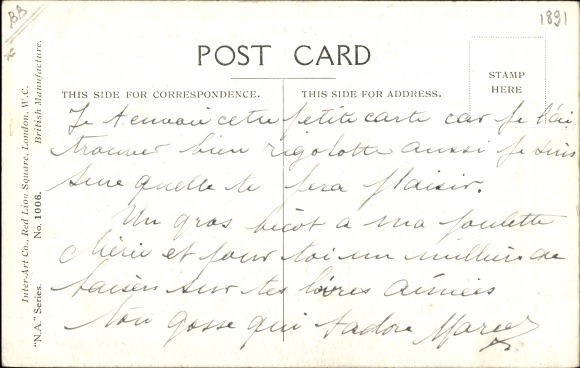 BB
1891
POST CARD
THIS SIDE FOR CORRESPONDENCE.
THIS SIDE FOR ADDRESS.
STAMP
HERE
Inter-Art Co., Red Lion Square, London, W.C.
British Manufacture.
"N.A." Series.
No. 1006.
Je t'envoie cette petite carte car je l'ai
trouver bien rigolotte aussi je suis
sure quelle te fera plaisir.
Un gros bécot a ma poulette
chérie et pour toi un milliers de
baisers sur tes lèvres aimées
ton gosse qui t'adore Marcel